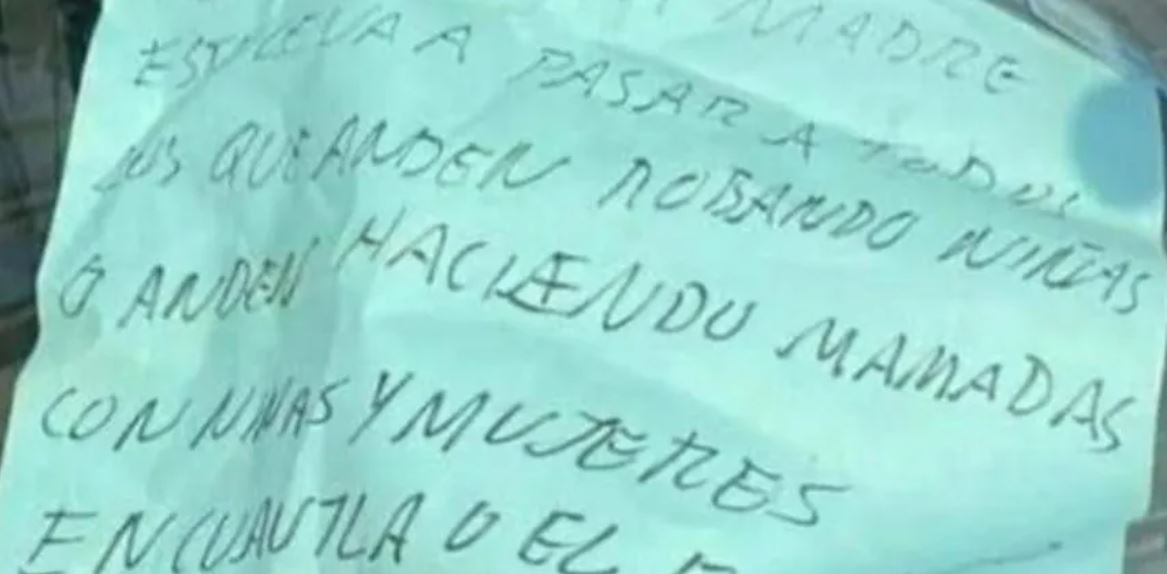 MADRE
ESTO LEVA A PASAR A TODOS
LOS QUE ANDEN ROBANDO NIÑAS
O ANDEN HACIENDO MAMADAS
CON NIÑAS Y MUJERES
EN CUAUTLA O EL